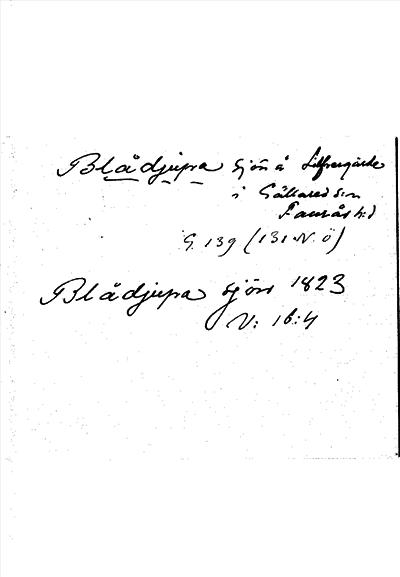 Blådjupa sjön å Silfvergärde
i Gällared s:n
Faurås h:d
G. 139 (131 N. Ö)
Blådjupa sjön 1823
V: 16:4